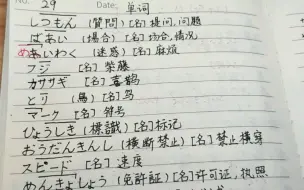 No. 29 Date. 单词
しつもん (質問) [名] 提问,问题
ばあい (場合) [名] 场合,情况
めいわく (迷惑) [名] 麻烦
フジ [名] 紫藤
カササギ [名] 喜鹊
とり (鳥) [名] 鸟
マーク [名] 符号
ひょうしき (標識) [名] 标记
おうだんきんし (横断禁止) [名] 禁止横穿
スピード [名] 速度
めんきょしょう (免許証) [名] 许可证,执照